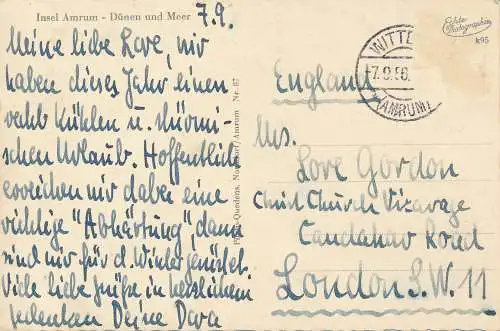 Insel Amrum - Dünen und Meer
7.9.
Meine liebe Lore, wir
haben dieses Jahr einen
recht kühlen u. stürmi-
schen Urlaub. Hoffentlich
erreichen wir dabei eine
richtige "Abhärtung", dann
sind wir für d. Winter gerüstet.
Viele liebe Grüße, in herzlichem
Gedenken Deine Dora
Quedens, Norddorf/Amrum Nr. 67
Echte
Photographie
k95
WITTD
7.9.56.
(AMRUM)
England
Mrs.
Lore Gordon
Christ Church Vicarage
Candahar Road
London S.W. 11